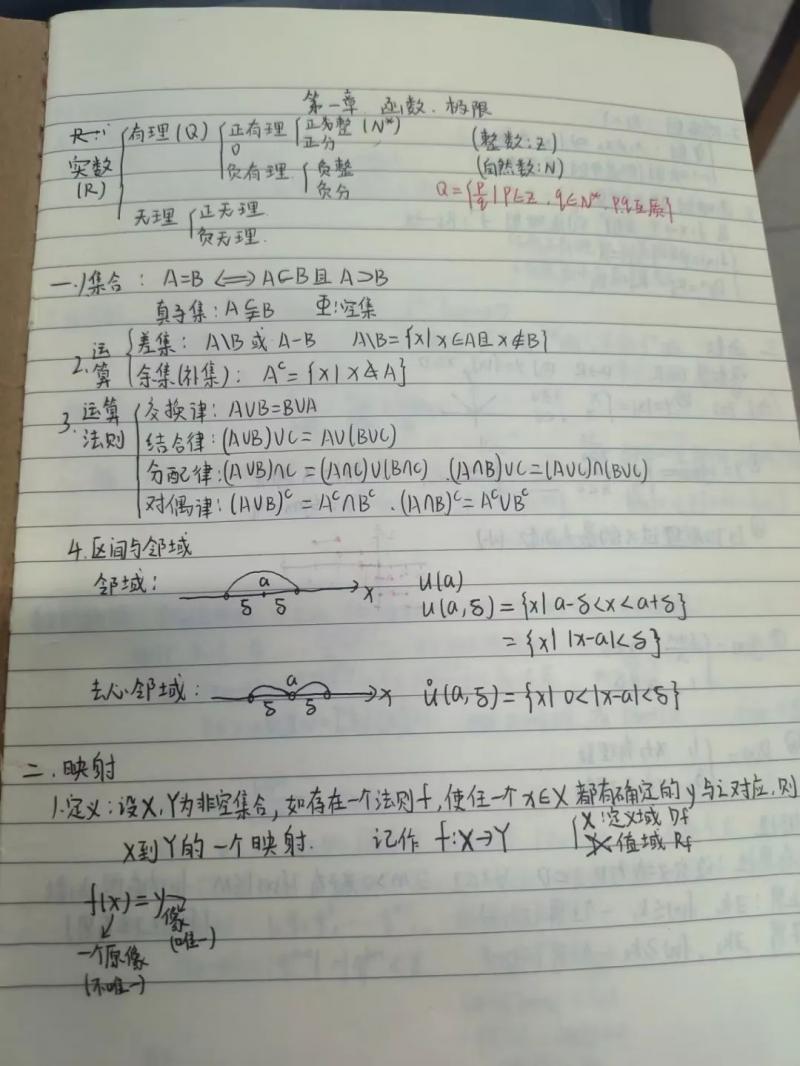 第一章 函数.极限
实数(R) 有理(Q) 正有理 正整(N*)
正分
0
负有理 负整
负分
无理 正无理
负无理.
(整数:Z)
(自然数:N)
Q={p/q|p∈Z,q∈N*,p,q互质}
一.1集合: A=B ⟺ A⊂B且A⊃B
真子集:A⫋B Φ:空集
2.运算 差集: A\B 或 A-B A\B={x|x∈A且x∉B}
余集(补集): Aᶜ={x|x∉A}
3.运算法则 交换律: A∪B=B∪A
结合律:(A∪B)∪C=A∪(B∪C)
分配律:(A∪B)∩C=(A∩C)∪(B∩C).(A∩B)∪C=(A∪C)∩(B∪C)
对偶律:(A∪B)ᶜ=Aᶜ∩Bᶜ.(A∩B)ᶜ=Aᶜ∪Bᶜ
4.区间与邻域
邻域: a δ δ x U(a)
U(a,δ)={x|a-δ<x<a+δ}
={x||x-a|<δ}
去心邻域: a δ δ x Ů(a,δ)={x|0<|x-a|<δ}
二.映射
1.定义:设X,Y为非空集合,如存在一个法则f,使任一个x∈X都有确定的y与之对应,则
X到Y的一个映射. 记作 f:X→Y X:定义域 Df
值域 Rf
f(x)=y
像
(唯一)
一个原像
(不唯一)